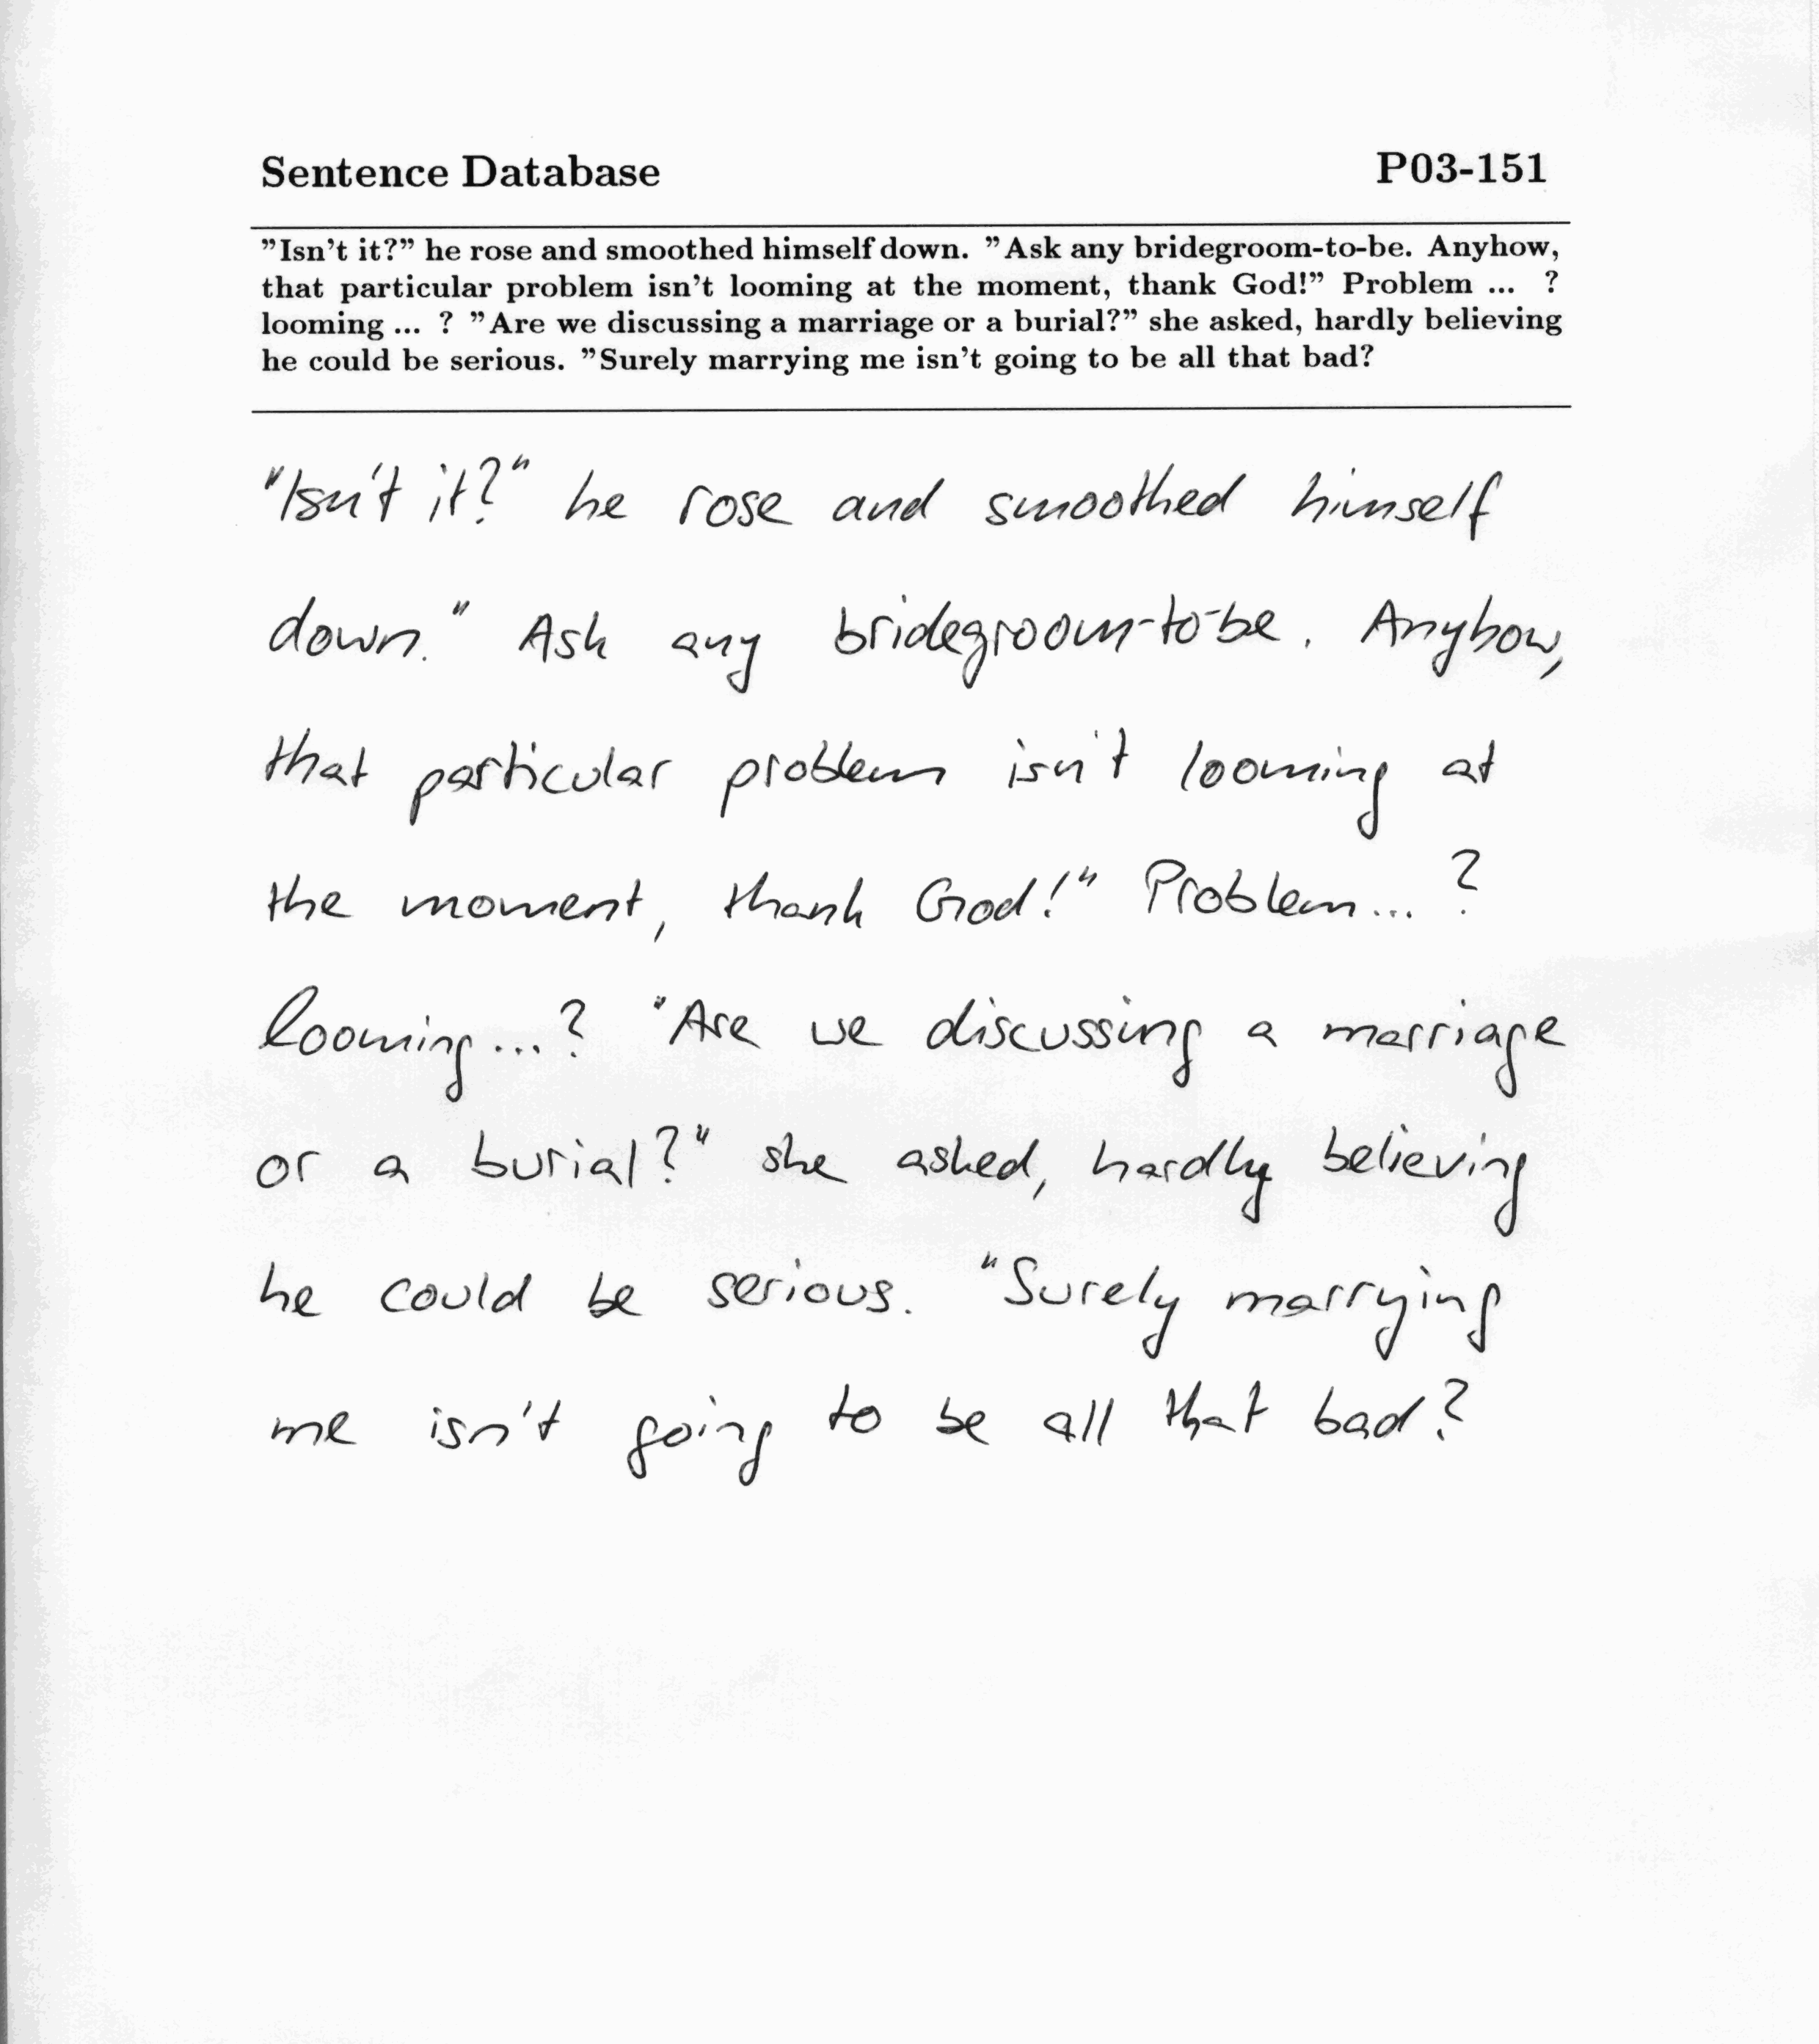 Sentence Database P03-151
"Isn't it?" he rose and smoothed himself down. "Ask any bridegroom-to-be. Anyhow,
that particular problem isn't looming at the moment, thank God!" Problem ... ?
looming ... ? "Are we discussing a marriage or a burial?" she asked, hardly believing
he could be serious. "Surely marrying me isn't going to be all that bad?
"Isn't it?" he rose and smoothed himself
down." Ask any bridegroom-to-be. Anyhow,
that particular problem isn't looming at
the moment, thank God!" Problem... ?
looming...? "Are we discussing a marriage
or a burial?" she asked, hardly believing
he could be serious. "Surely marrying
me isn't going to be all that bad?